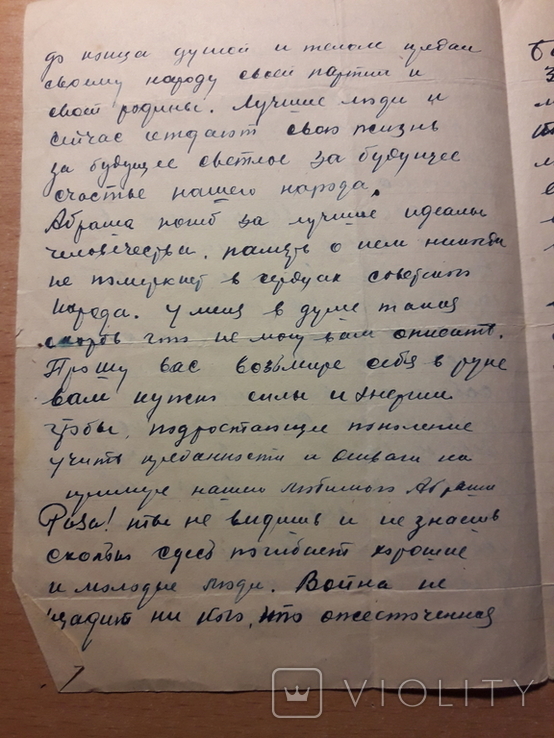 до конца душой и телом предан
своему народу своей партии и
своей родины. Лучшие люди и
сейчас отдают свою жизнь
за будущее светлое за будущее
счастье нашего народа.
Абраша погиб за лучшие идеалы
человечества, память о нем никогда
не померкнет в сердцах советского
народа. У меня в душе такая
скорбь что не могу вам описать.
Прошу вас возьмите себя в руки
вам нужны силы и энергии
чтобы, подростающие поколение
учить преданности и отваги на
примере нашего любимого Абраши
Роза! ты не видишь и не знаешь
сколько сдесь погибает хорошие
и молодые люди. Война не
щадит ни кого, это ожесточенная
7
VIOLITY